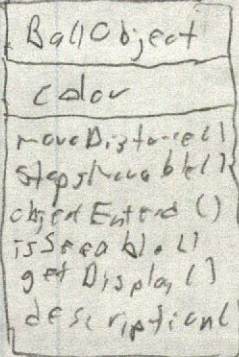 BallObject
color
moveDistance()
stepsMovable()
objectExtend()
isSeeable()
getDisplay()
description(